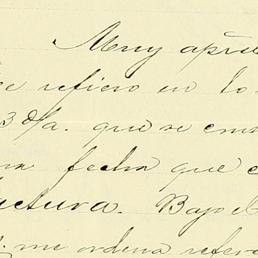 Muy apre
e refiero en lo
3 d/a. que se em
na fecha que c
ctura. Bajo el
me ordena refere